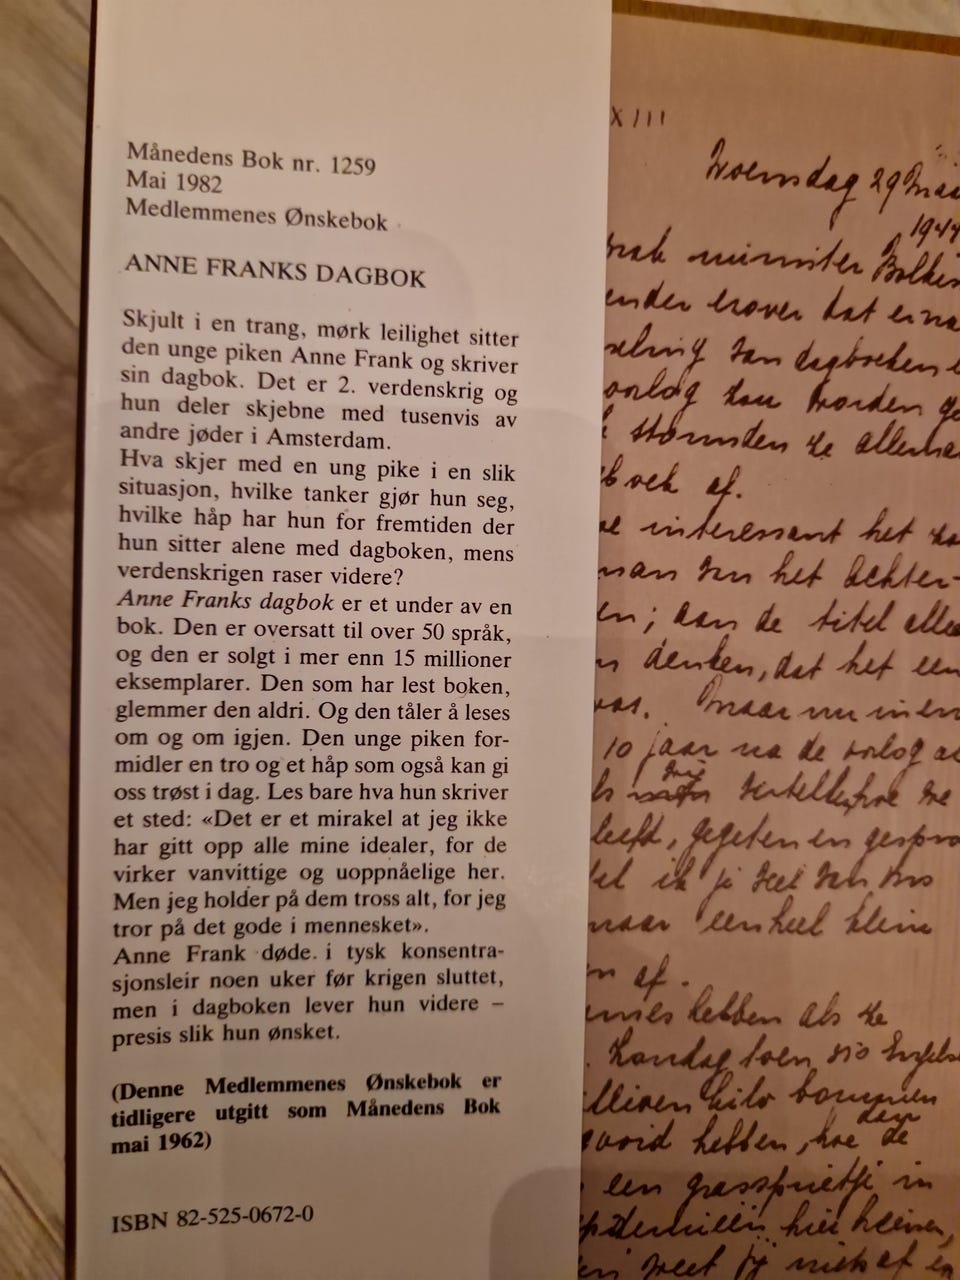 Månedens Bok nr. 1259
Mai 1982
Medlemmenes Ønskebok
ANNE FRANKS DAGBOK
Skjult i en trang, mørk leilighet sitter
den unge piken Anne Frank og skriver
sin dagbok. Det er 2. verdenskrig og
hun deler skjebne med tusenvis av
andre jøder i Amsterdam.
Hva skjer med en ung pike i en slik
situasjon, hvilke tanker gjør hun seg,
hvilke håp har hun for fremtiden der
hun sitter alene med dagboken, mens
verdenskrigen raser videre?
Anne Franks dagbok er et under av en
bok. Den er oversatt til over 50 språk,
og den er solgt i mer enn 15 millioner
eksemplarer. Den som har lest boken,
glemmer den aldri. Og den tåler å leses
om og om igjen. Den unge piken for-
midler en tro og et håp som også kan gi
oss trøst i dag. Les bare hva hun skriver
et sted: «Det er et mirakel at jeg ikke
har gitt opp alle mine idealer, for de
virker vanvittige og uoppnåelige her.
Men jeg holder på dem tross alt, for jeg
tror på det gode i mennesket».
Anne Frank døde. i tysk konsentra-
sjonsleir noen uker før krigen sluttet,
men i dagboken lever hun videre –
presis slik hun ønsket.
(Denne Medlemmenes Ønskebok er
tidligere utgitt som Månedens Bok
mai 1962)
ISBN 82-525-0672-0
XIII
Woensdag 29
1944
minister
over dat
van dagboeken
oorlog zou worden
stormden ze
af.
interessant het
van het achter-
en; aan de titel
denken, dat het een
was. Maar nu in
10 jaar na de oorlog
wij vertellen hoe we
geleefd, gegeten en
ik je veel van ons
maar een heel klein
af.
hebben als ze
Zondag toen
kilo bommen
gooid hebben, hoe de
een grassprietje in
epidemieën hier
weet jij niets af